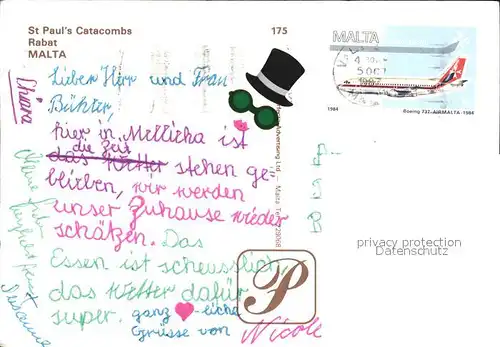 St Paul's Catacombs
Rabat
MALTA
175
MALTA
1984
Boeing 737-AIRMALTA-1984
Chiara
Lieber Herr und Frau
Bühter,
hier in Mellieha ist
die Zeit
das Wetter stehen ge-
blieben, wir werden
unser Zuhause wieder
schätzen. Das
Essen ist scheusslich,
das Wetter dafür
super. ganz ♥-liche
Grüsse von Nicole
Susanne
privacy protection
Datenschutz
P